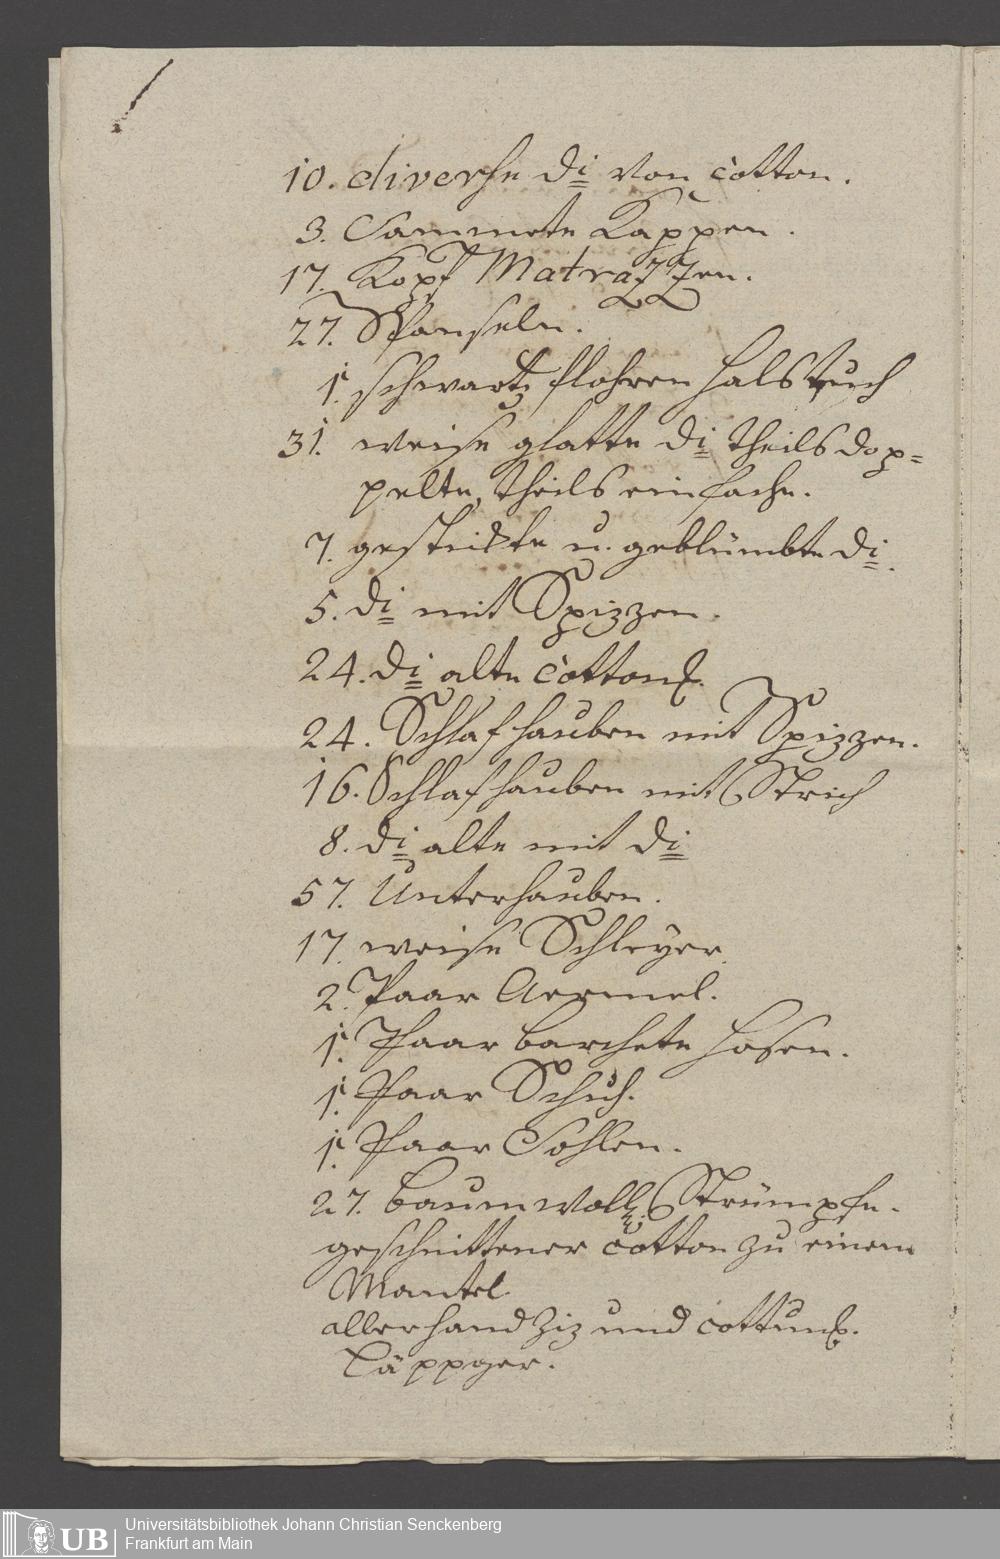 10. diverse di von cotton.
3. Sammete Kappen.
17. Kopf Matrazzen.
27.
1. schwartz flohren Halstuch
31. weise glatte di theils dop=
pelte, theils einfache.
7. gestrickte u. geblümbte di.
5. di mit Spizzen.
24. di alte cotton.
24. Schlafhauben mit Spizzen.
16. Schlafhauben mit Strich
8. di alte mit di
57. Unterhauben.
17. weise Schleyer.
2. Paar Aermel.
1. Paar barchete Hosen.
1. Paar Schuh.
1. Paar Sohlen.
27. baumwoll Strümpfe.
geschnittener cotton zu einem
Mantel
allerhand Ziz und cottun.
Läppger.
Universitätsbibliothek Johann Christian Senckenberg
Frankfurt am Main
UB